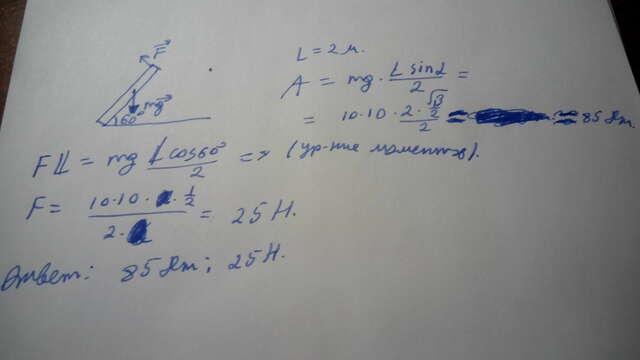 F⃗
mg⃗
60°
L = 2 м.
A = mg · L sinα / 2 =
= 10·10 · 2 · √3/2 / 2 = = 85 Дж.
FL = mg L cos60° / 2 => (ур-ние моментов).
F = 10·10 · 1/2 / 2 · = 25 Н.
Ответ: 85 Дж; 25 Н.